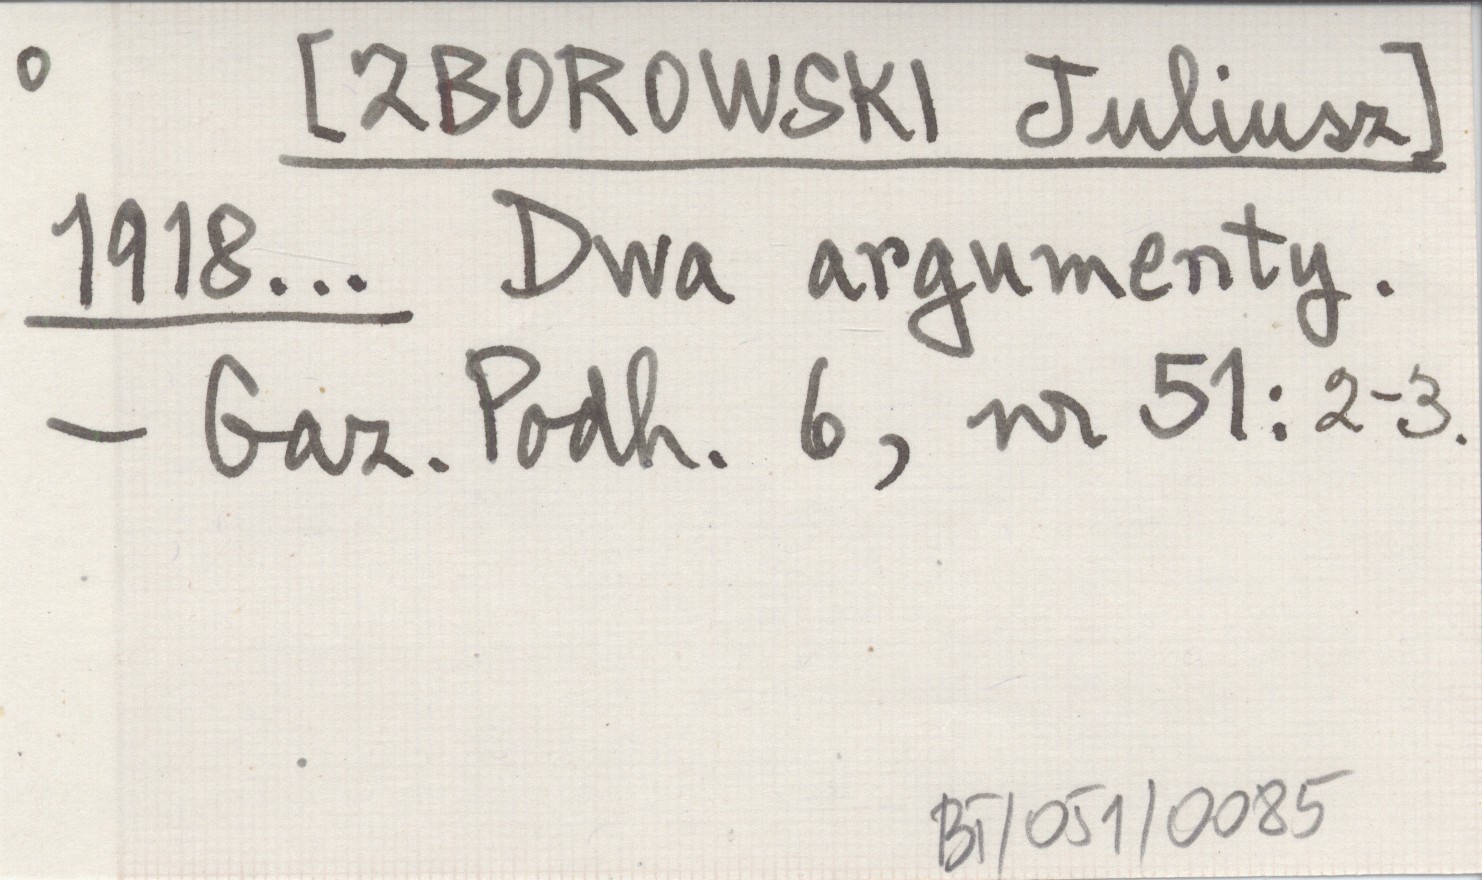 o [ZBOROWSKI Juliusz]
1918... Dwa argumenty.
- Gaz. Podh. 6, nr 51: 2-3.
BT/051/0085